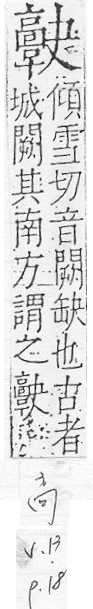 𩫡
傾雪切音闕缺也古者
城闕其南方謂之𩫡
v.13
p.18